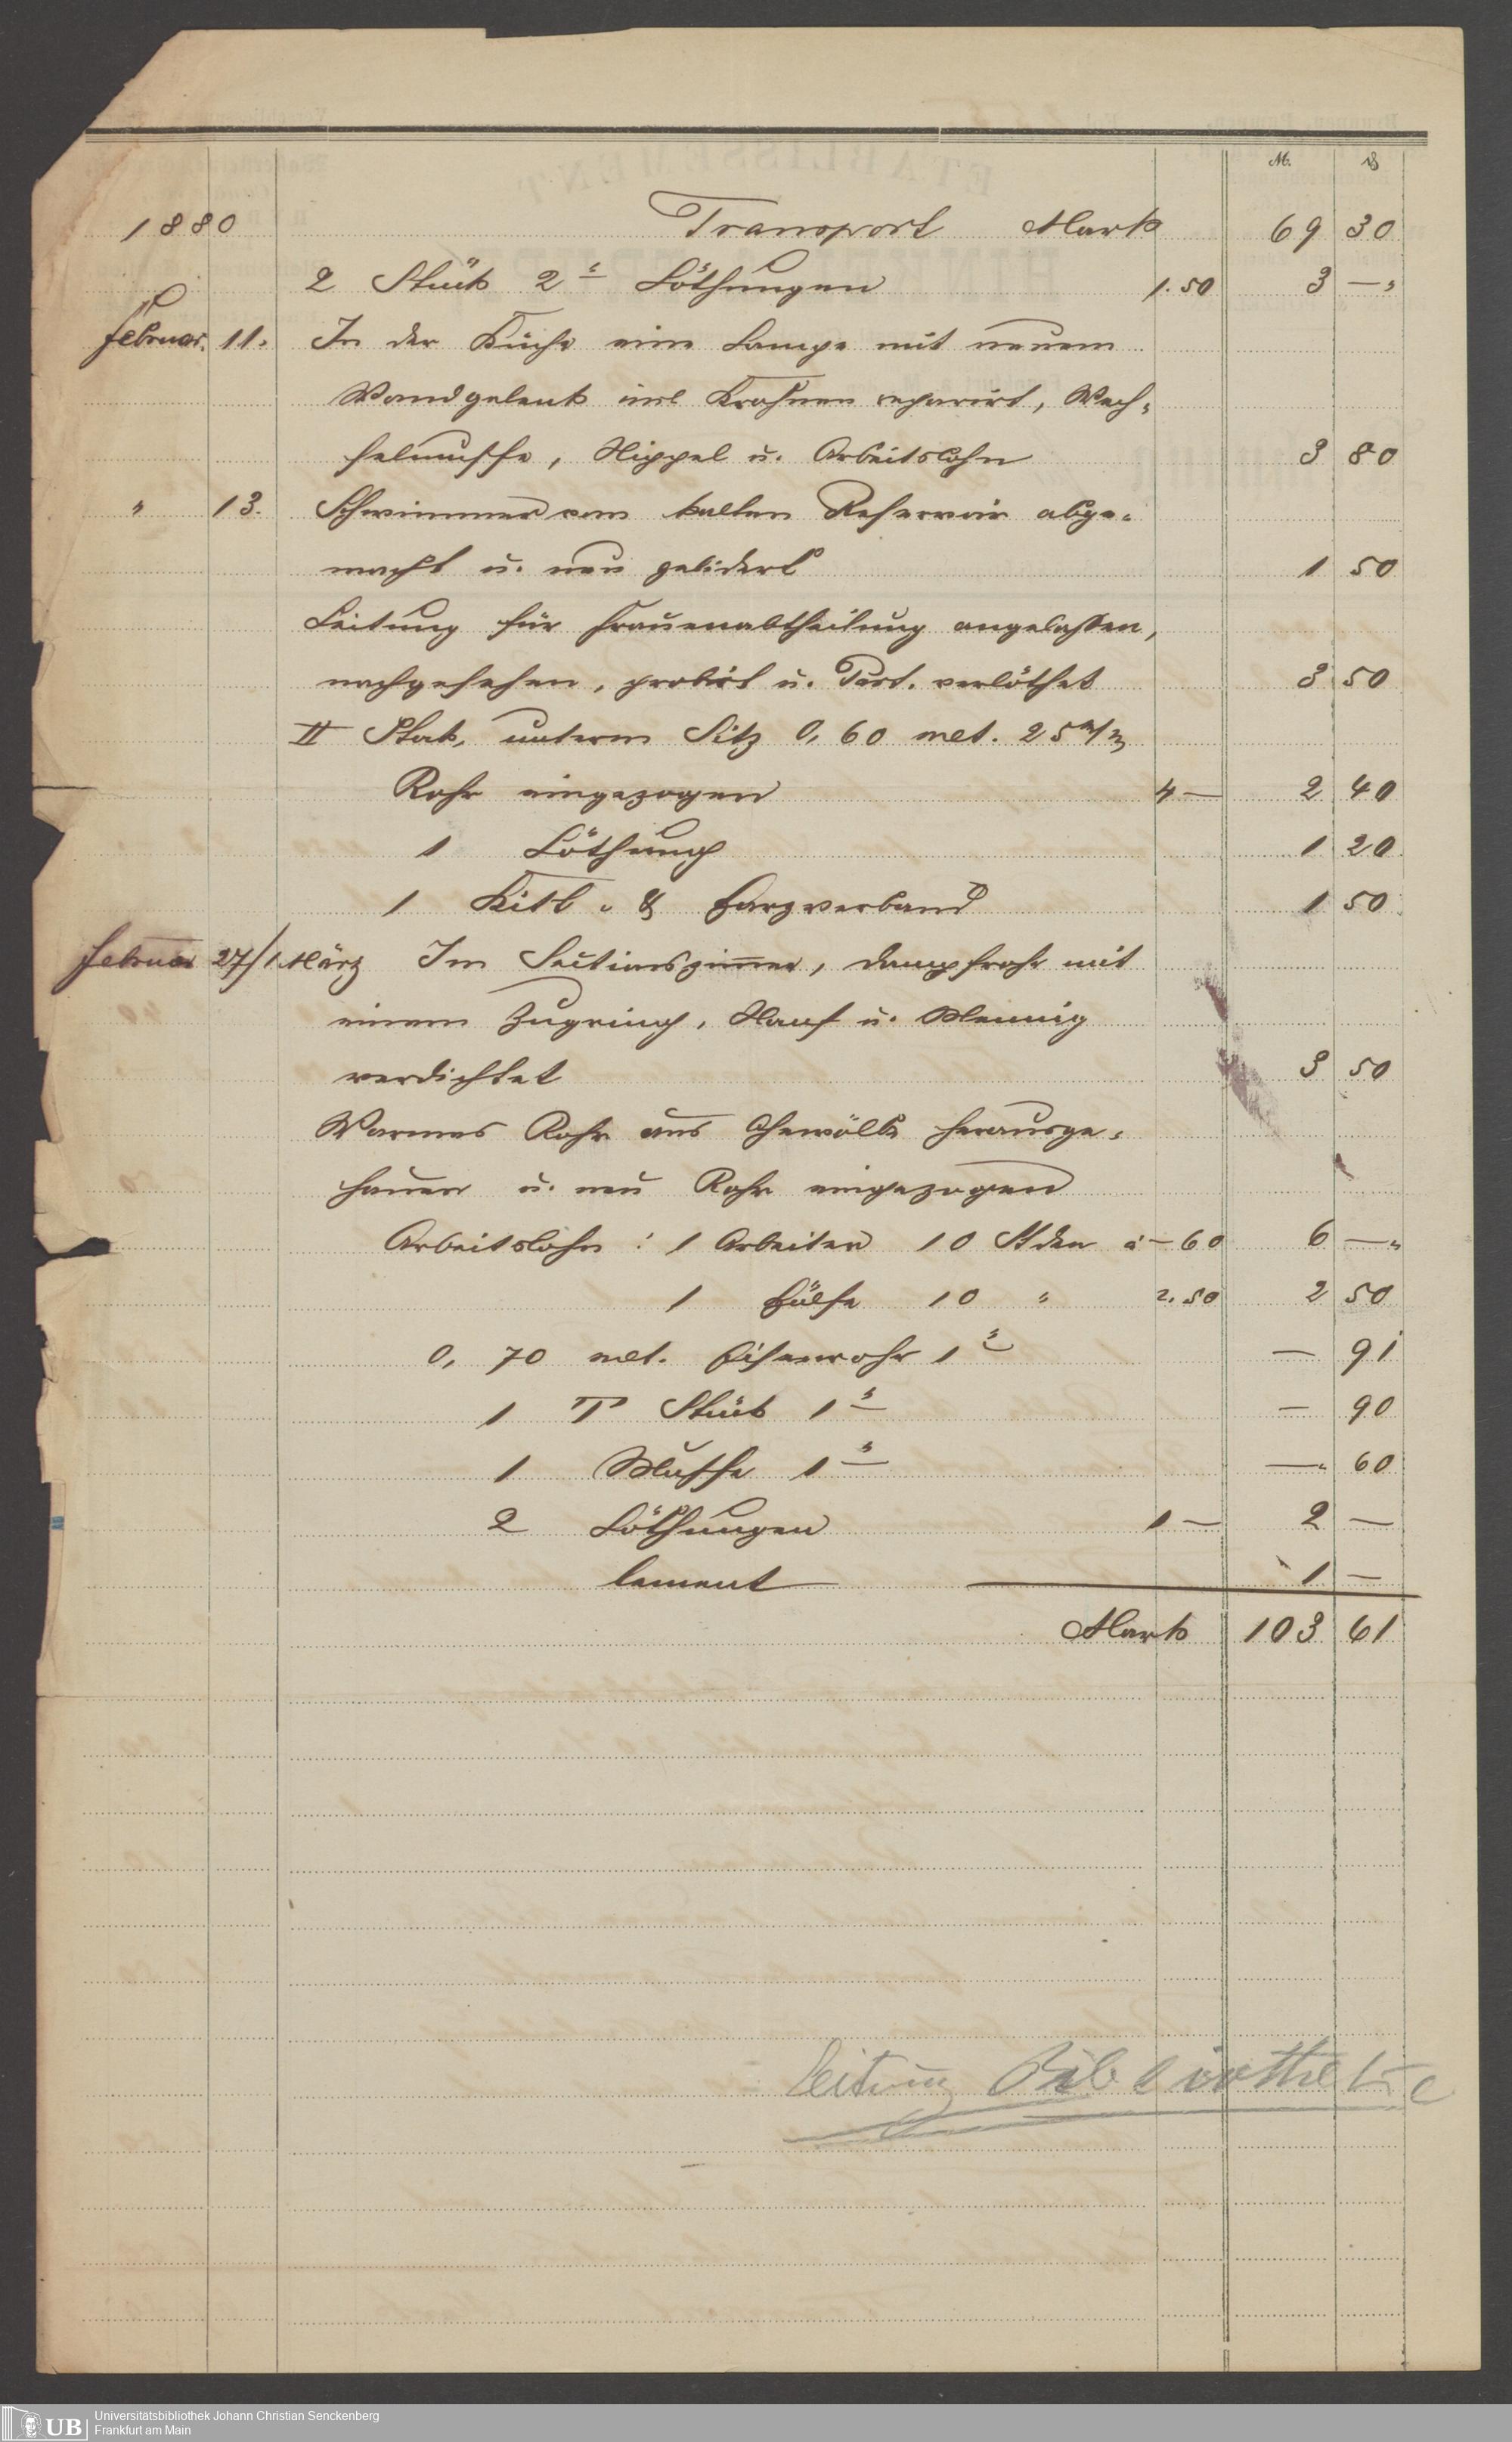 M. ₰
1880 Transport Mark 69 30
2 Stück 2" Löthungen 1.50 3 —"
Februar. 11. In der Küche eine Lampe mit neuem
Wandgelenk und Krahnen reparirt, Wech-
selmuffe, Nippel u. Arbeitslohn 3 80
" 13. Schwimmer vom kalten Reservoir abge-
macht u. neu gelidert 1 50
Leitung für Frauenabtheilung angelassen,
nachgesehen, probirt u. verlöthet 3 50
II Stock, unterm Sitz 0,60 met. 25 m/m
Rohr eingezogen 4 — 2 40
1 Löthung 1 20
1 Kitt- & Harzverband 1 50
Februar 27/1. März Im Sectionszimmer, Dampfrohr mit
einem Zugring, Hanf u. Mennig
verdichtet 3 50
Warmes Rohr aus Gewölbe herausge-
hauen u. neu Rohr eingezogen
Arbeitslohn: 1 Arbeiter 10 Stden à — 60 6 —"
1 Hülfe 10 " 2.50 2 50
0,70 met. Eisenrohr 1" — 91
1 T Stück 1" — 90
1 Muffe 1" —" 60
2 Löthungen 1 — 2 —
Cement 1 —
Mark 103 61
Leitung Bibliothek
UB Universitätsbibliothek Johann Christian Senckenberg
Frankfurt am Main